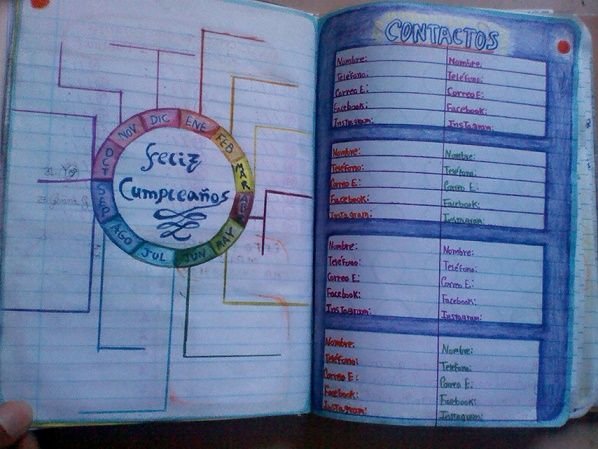 DIC
ENE
FEB
MAR
ABR
MAY
JUN
JUL
AGO
SEP
OCT
NOV
Feliz
Cumpleaños
CONTACTOS
Nombre: Nombre:
Teléfono: Teléfono:
Correo E: Correo E:
Facebook: Facebook:
Instagram: Instagram:
Nombre: Nombre:
Teléfono: Teléfono:
Correo E: Correo E:
Facebook: Facebook:
Instagram: Instagram:
Nombre: Nombre:
Teléfono: Teléfono:
Correo E: Correo E:
Facebook: Facebook:
Instagram: Instagram:
Nombre: Nombre:
Teléfono: Teléfono:
Correo E: Correo E:
Facebook: Facebook:
Instagram: Instagram: